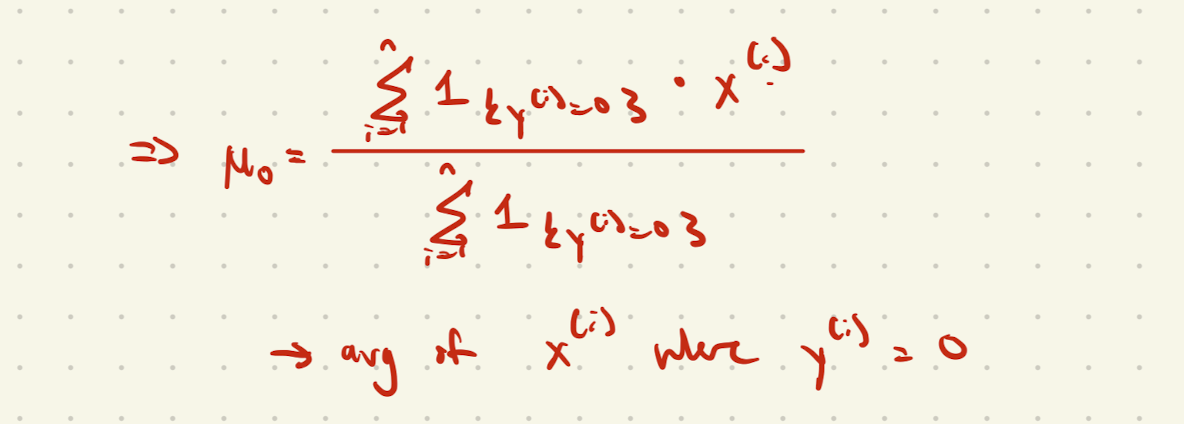 ⇒ μ₀ = \frac{\sum_{i=1}^{n} 1\{y^{(i)}=0\} \cdot x^{(i)}}{\sum_{i=1}^{n} 1\{y^{(i)}=0\}}
→ avg of x^{(i)} where y^{(i)} = 0